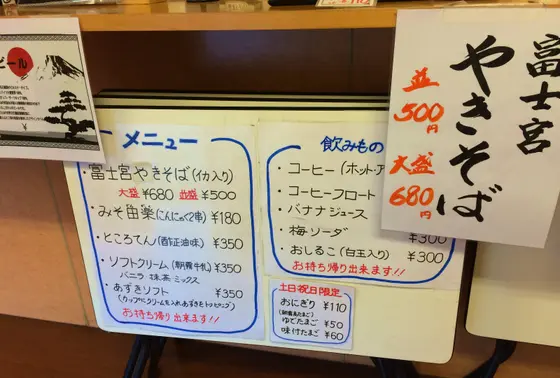 ビール
メニュー
・富士宮やきそば(イカ入り)
大盛 ¥680 並盛 ¥500
・みそ田楽(こんにゃく2串) ¥180
・ところてん(酢正油味) ¥350
・ソフトクリーム(朝霧牛乳) ¥350
バニラ 抹茶 ミックス
・あずきソフト ¥350
(カップにクリームを入れあずきをトッピング)
お持ち帰り出来ます!!
飲みもの
・コーヒー(ホット・ア
・コーヒーフロート
・バナナジュース
・梅ソーダ ¥300
・おしるこ(白玉入り) ¥300
お持ち帰り出来ます!!
土日祝日限定
おにぎり ¥110
ゆでたまご ¥50
味付たまご ¥60
富士宮
やきそば
並
500円
大盛
680円